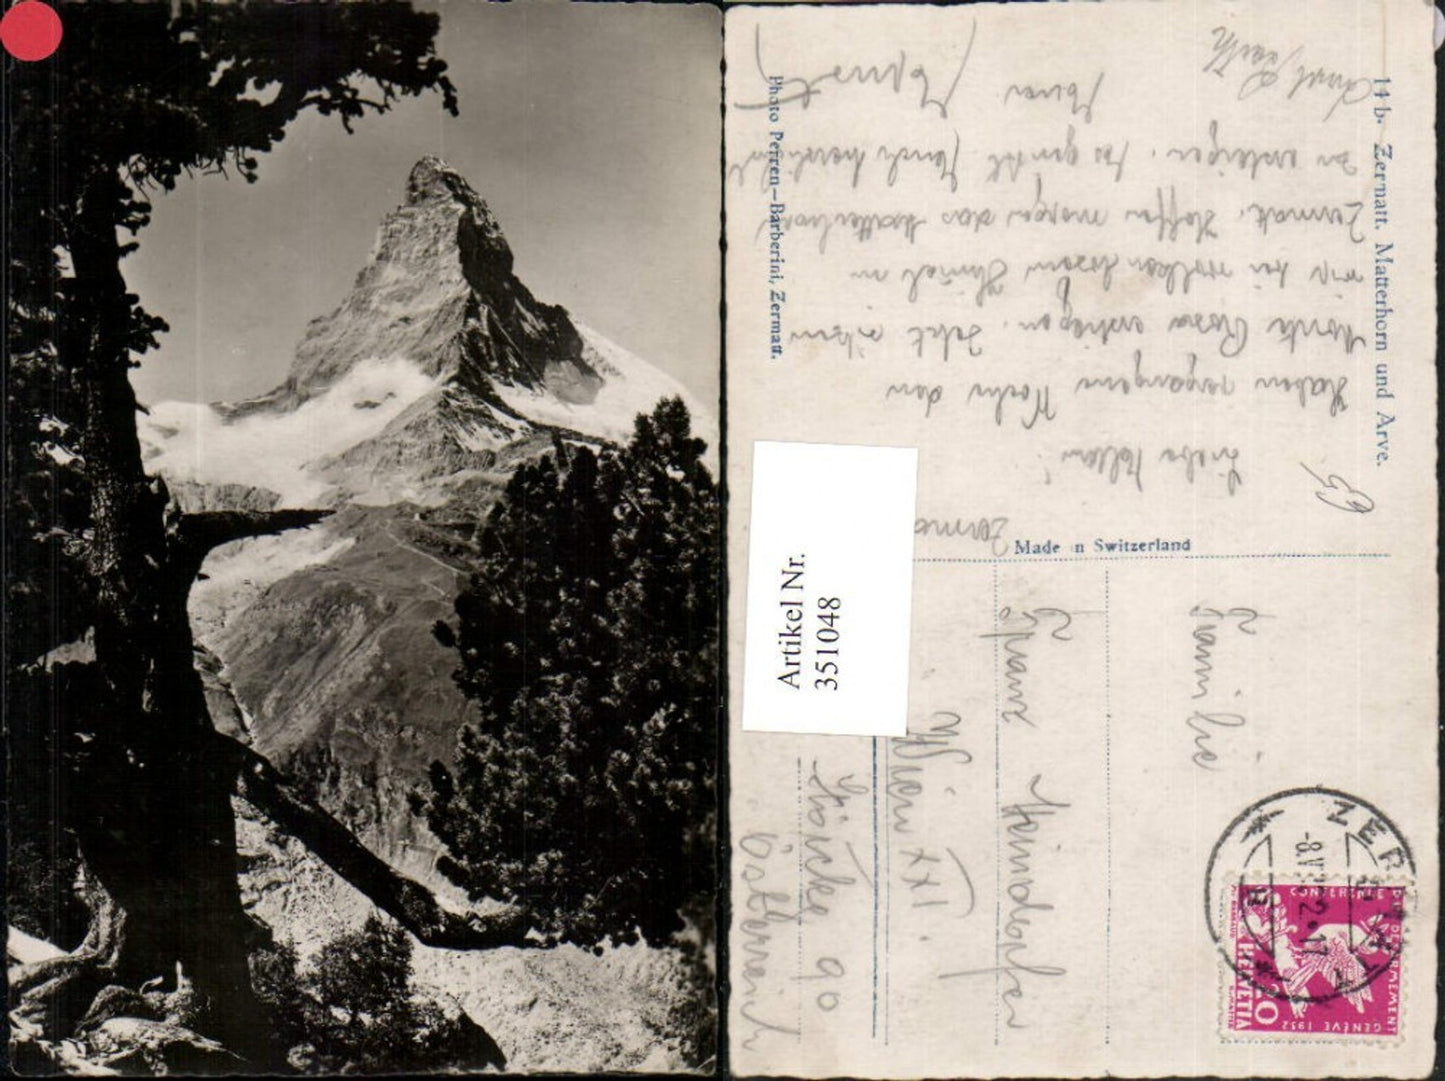 14 b. Zermatt. Matterhorn und Arve.
Photo Perren-Barberini, Zermatt.
Made in Switzerland
Artikel Nr.
351048
Liebe
Haben vergangene Woche den
Monte Rosa erstiegen. Jetzt sitzen
wir bei wolkenlosem Himmel in
Zermatt. Hoffen morgen das Matterhorn
zu ersteigen. Es grüßt Euch herzlichst
Euer
Familie
Franz Heindorfer
Wien XXI.
90
Österreich
ZER
CONFERENCE
DU DESARMEMENT
GENÈVE 1932
HELVETIA
20